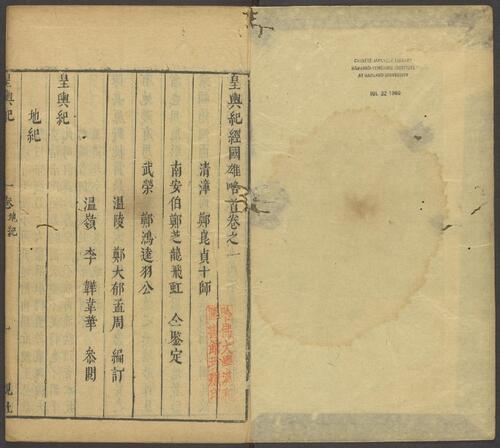 CHINESE-JAPANESE LIBRARY
HARVARD-YENCHING INSTITUTE
AT HARVARD UNIVERSITY
JUL 22 1960
皇輿紀經國雄略首卷之一
清漳 鄭崑貞十師
南安伯鄭芝龍飛虹 仝鑒定
武榮 鄭鴻逵羽公
溫陵 鄭大郁孟周 編訂
溫嶺 李 韡韋華 參閱
地紀
皇輿紀
皇輿紀 一卷 地紀
觀社